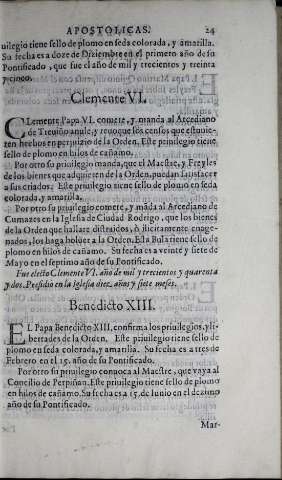 APOSTOLICAS. 24
uilegio tiene sello de plomo en seda colorada, y amarilla.
Su fecha es a doze de Diziembre en el primero año de su
Pontificado, que fue el año de mil y trecientos y treinta
y cinco.
Clemente VI.
CLemente Papa VI. comete, y manda al Arcediano
de Treuiño anule, y reuoque los censos que estuuie-
ren hechos en perjuizio de la Orden. Este priuilegio tiene
sello de plomo en hilos de cañamo.
Por otro su priuilegio manda, que el Maestre, y Freyles
de los bienes que adquieren de la Orden, puedan satisfacer
a sus criados. Este priuilegio tiene sello de plomo en seda
colorada, y amarilla.
Por otro su priuilegio comete, y māda al Arcediano de
Camazes en la Iglesia de Ciudad Rodrigo, que los bienes
de la Orden que hallare distraidos, ò ilicitamente enage-
nados, los haga boluer a la Orden. Esta Bula tiene sello de
plomo en hilos de cañamo. Su fecha es a veinte y siete de
Mayo en el septimo año de su Pontificado.
Fue electo Clemente VI. año de mil y trecientos y quarenta
y dos. Presidio en la Iglesia diez años y siete meses.
Benedicto XIII.
EL Papa Benedicto XIII. confirma los priuilegios, y li-
bertades de la Orden. Este priuilegio tiene sello de
plomo en seda colorada, y amarilla. Su fecha es a tres de
Febrero en el 15. año de su Pontificado.
Por otro su priuilegio conuoca al Maestre, que vaya al
Concilio de Perpiñan. Este priuilegio tiene sello de plomo
en hilos de cañamo. Su fecha es a 15. de Iunio en el dezimo
año de su Pontificado.
Mar-